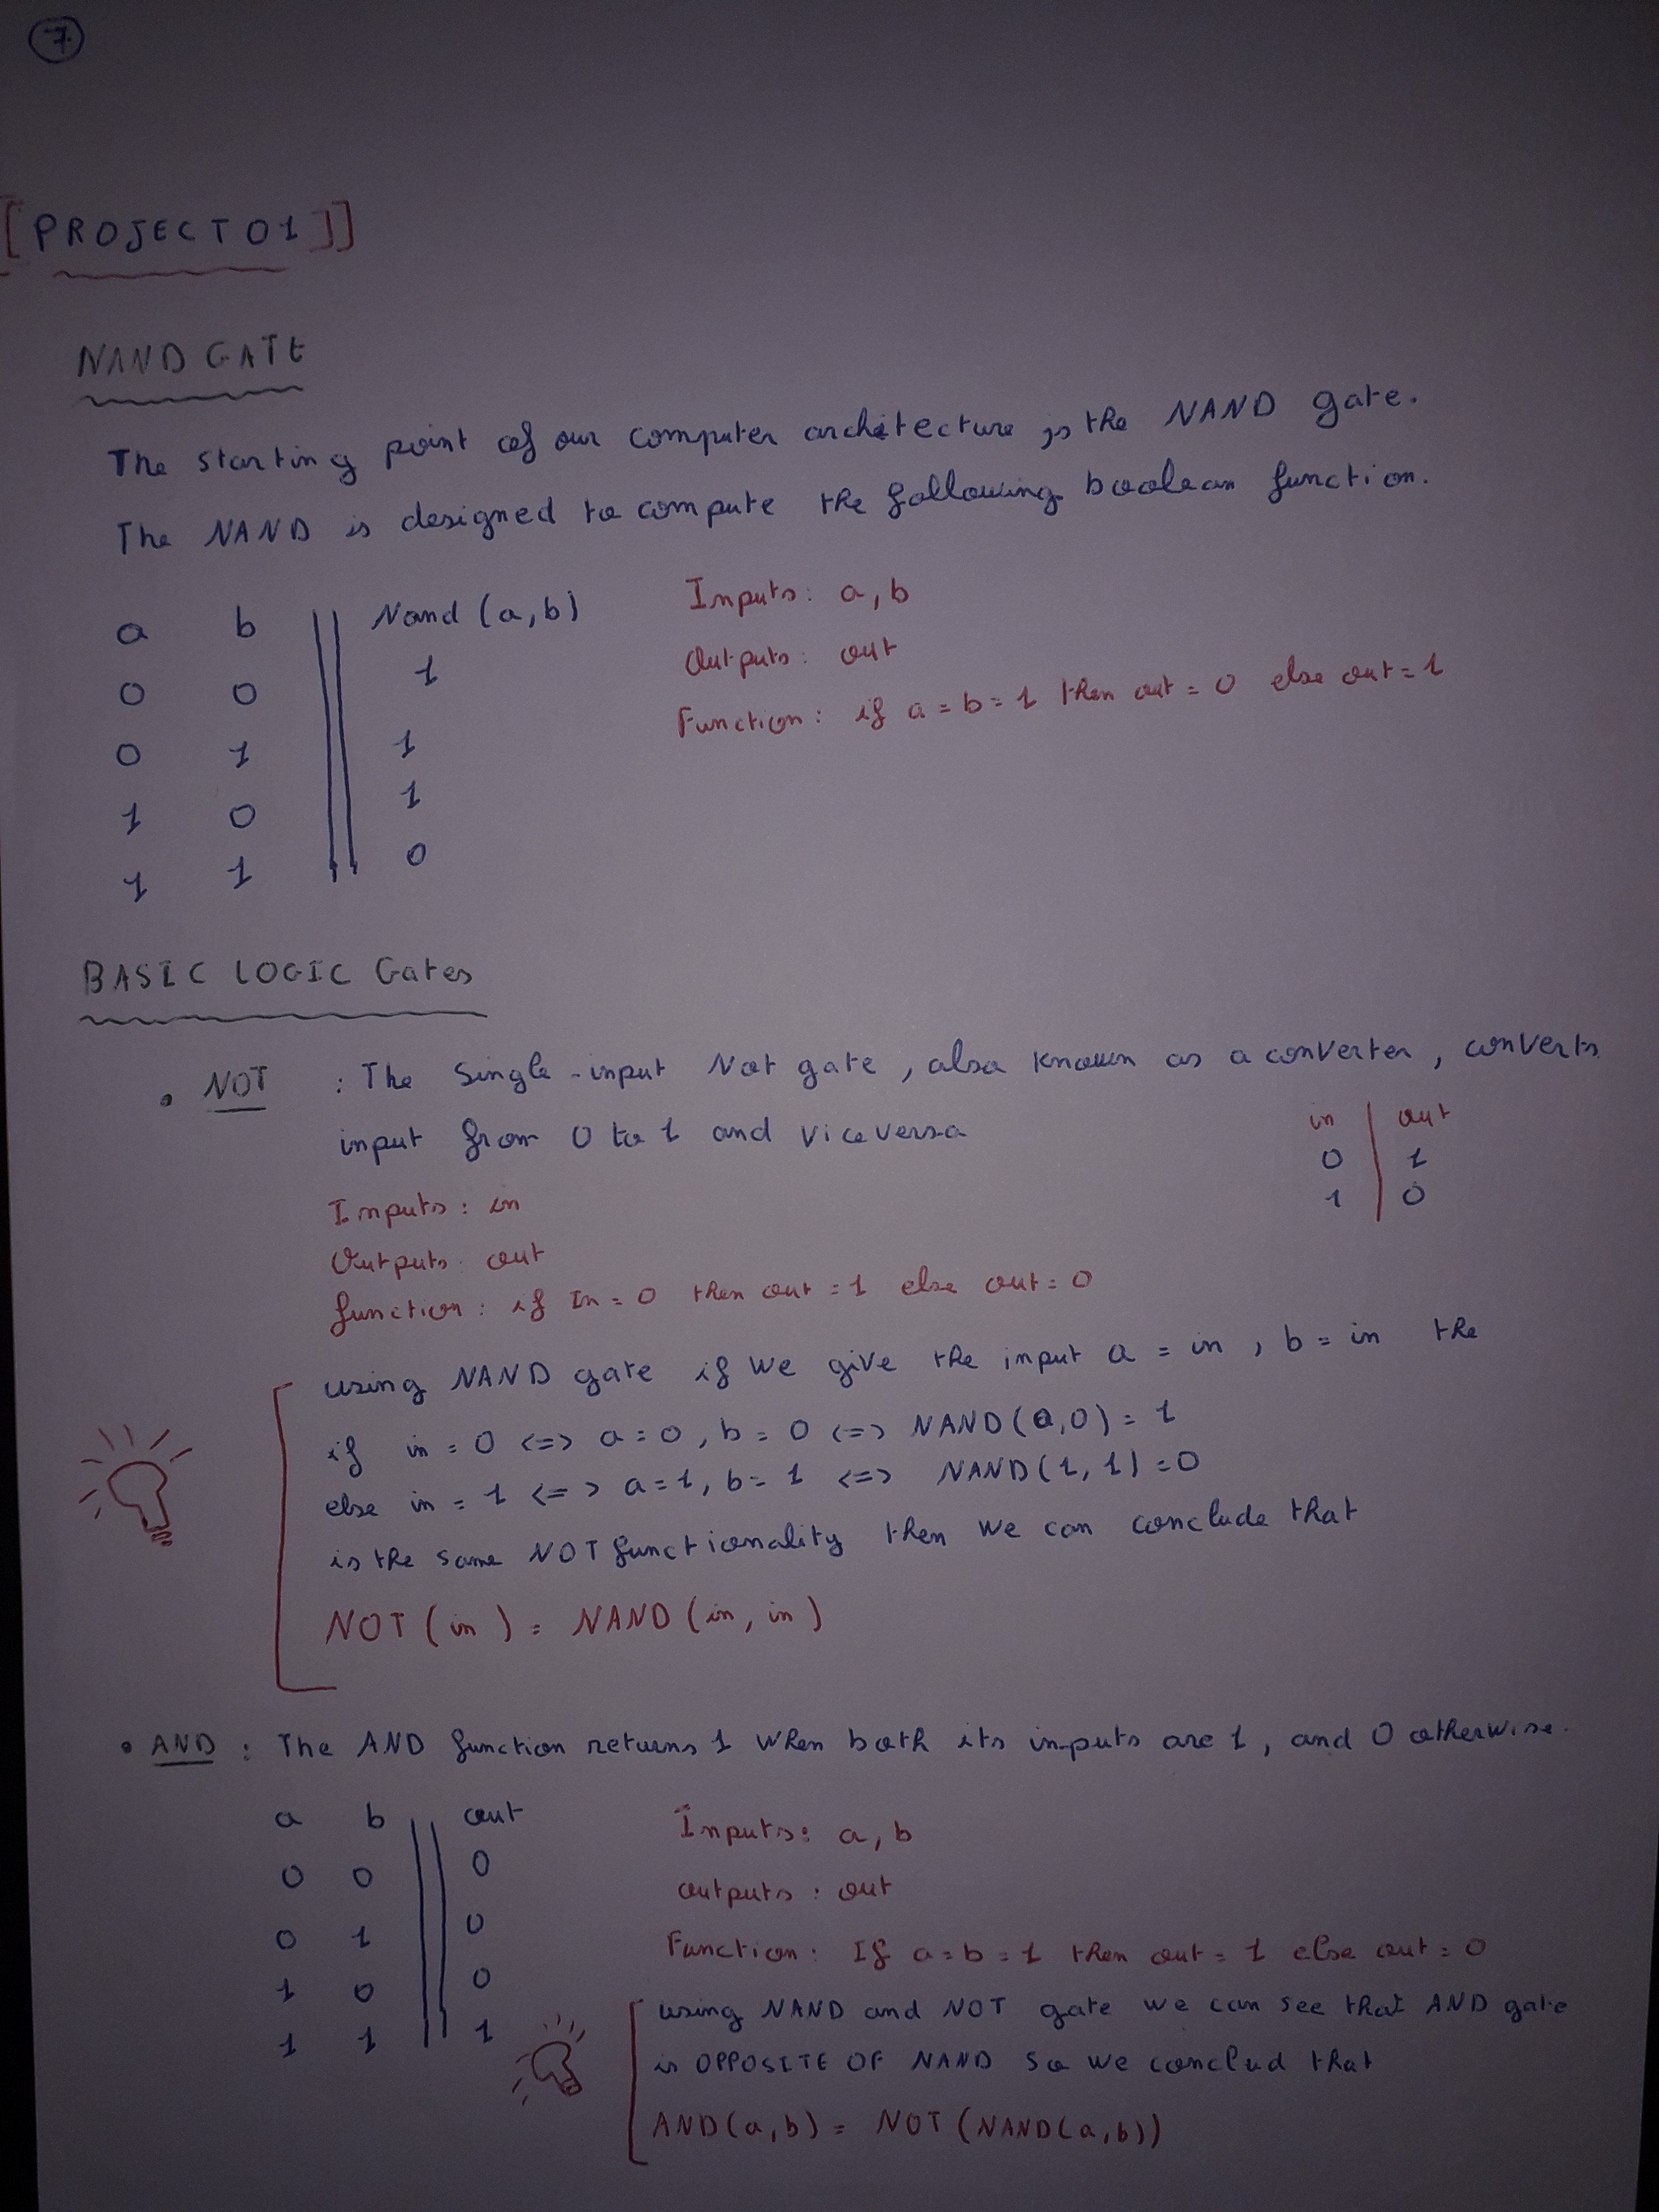 7
[PROJECT 01]]
NAND GATE
The starting point of our computer architecture is the NAND gate.
The NAND is designed to compute the following boolean function.
a b || Nand (a,b)
0 0 || 1
0 1 || 1
1 0 || 1
1 1 || 0
Inputs: a, b
Outputs: out
Function: if a = b = 1 then out = 0 else out = 1
BASIC LOGIC Gates
• NOT : The Single-input Not gate, also known as a converter, converts
input from 0 to 1 and viceversa
in | out
0 | 1
1 | 0
Inputs: in
Outputs: out
function: if In = 0 then out = 1 else out = 0
using NAND gate if we give the input a = in, b = in the
if in = 0 <=> a = 0, b = 0 <=> NAND(0,0) = 1
else in = 1 <=> a = 1, b = 1 <=> NAND(1,1) = 0
is the same NOT functionality then we can conclude that
NOT (in) = NAND (in, in)
• AND : The AND function returns 1 when both its inputs are 1, and 0 otherwise.
a b || out
0 0 || 0
0 1 || 0
1 0 || 0
1 1 || 1
Inputs: a, b
outputs: out
Function: If a = b = 1 then out = 1 else out = 0
using NAND and NOT gate we can see that AND gate
is OPPOSITE OF NAND so we conclud that
AND(a,b) = NOT (NAND(a,b))